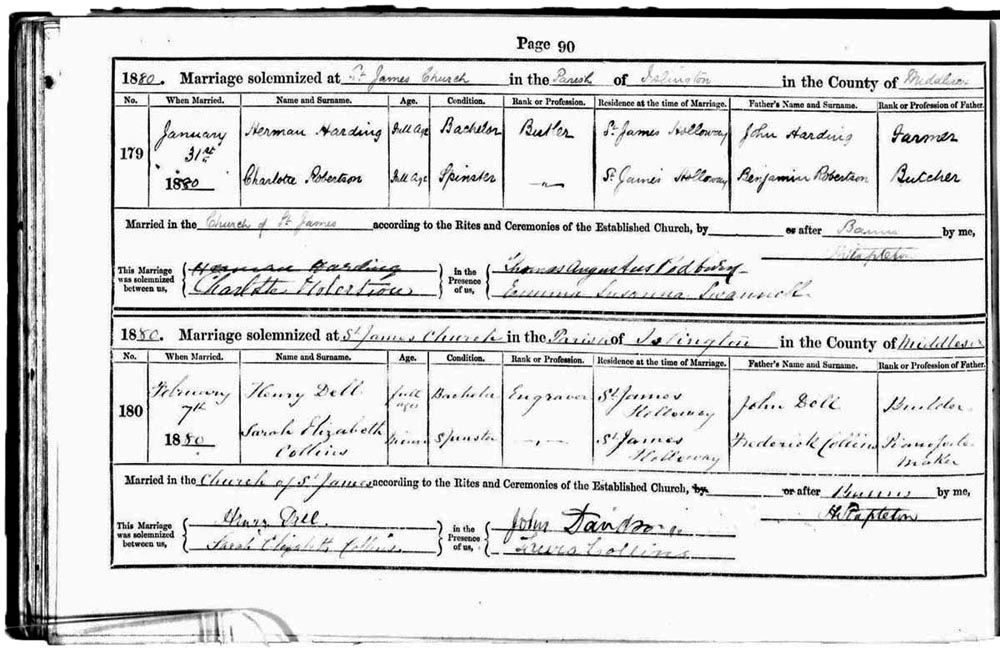 Page 90
1880. Marriage solemnized at St James Church in the Parish of Islington in the County of Middlesex
No. When Married. Name and Surname. Age. Condition. Rank or Profession. Residence at the time of Marriage. Father's Name and Surname. Rank or Profession of Father.
January Herman Harding Full Age Bachelor Butler St James Holloway John Harding Farmer
179 31st
1880 Charlotte Robertson Full Age Spinster — " — St James Holloway Benjamin Robertson Butcher
Married in the Church of St James according to the Rites and Ceremonies of the Established Church, by or after Banns by me,
Stapleton
This Marriage was solemnized between us, Herman Harding in the Presence of us, Thomas Augustus
Charlotte Robertson Emma Susanna Swannell
1880. Marriage solemnized at St James Church in the Parish of Islington in the County of Middlesex
No. When Married. Name and Surname. Age. Condition. Rank or Profession. Residence at the time of Marriage. Father's Name and Surname. Rank or Profession of Father.
February Henry Dell full age Bachelor Engraver St James Holloway John Dell Builder
180 7th
1880 Sarah Elizabeth Collins Minor Spinster — " — St James Holloway Frederick Collins Pianoforte Maker
Married in the Church of St James according to the Rites and Ceremonies of the Established Church, by or after Banns by me,
Stapleton
This Marriage was solemnized between us, Henry Dell in the Presence of us, John Davidson
Sarah Elizabeth Collins Lewis Collins